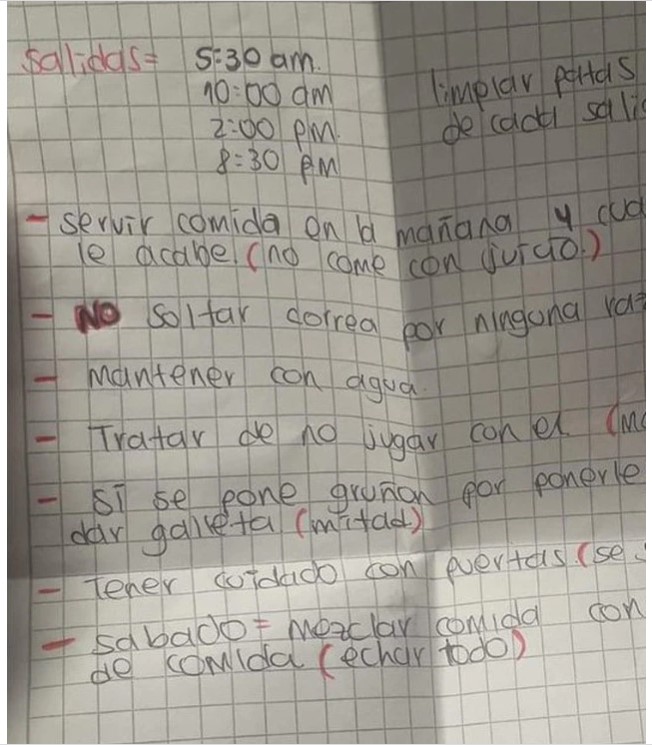 salidas= 5:30 am.
10:00 am
2:00 pm.
8:30 PM
limpiar patas
de cada
- servir comida en la mañana y
le acabe. (no come con juicio.)
- NO soltar correa por ninguna
- Mantener con agua.
- Tratar de no jugar con el
- si se pone gruñon por ponerle
dar galleta (mitad)
- Tener cuidado con puertas (se
- sabado= mezclar comida con
de comida (echar todo)